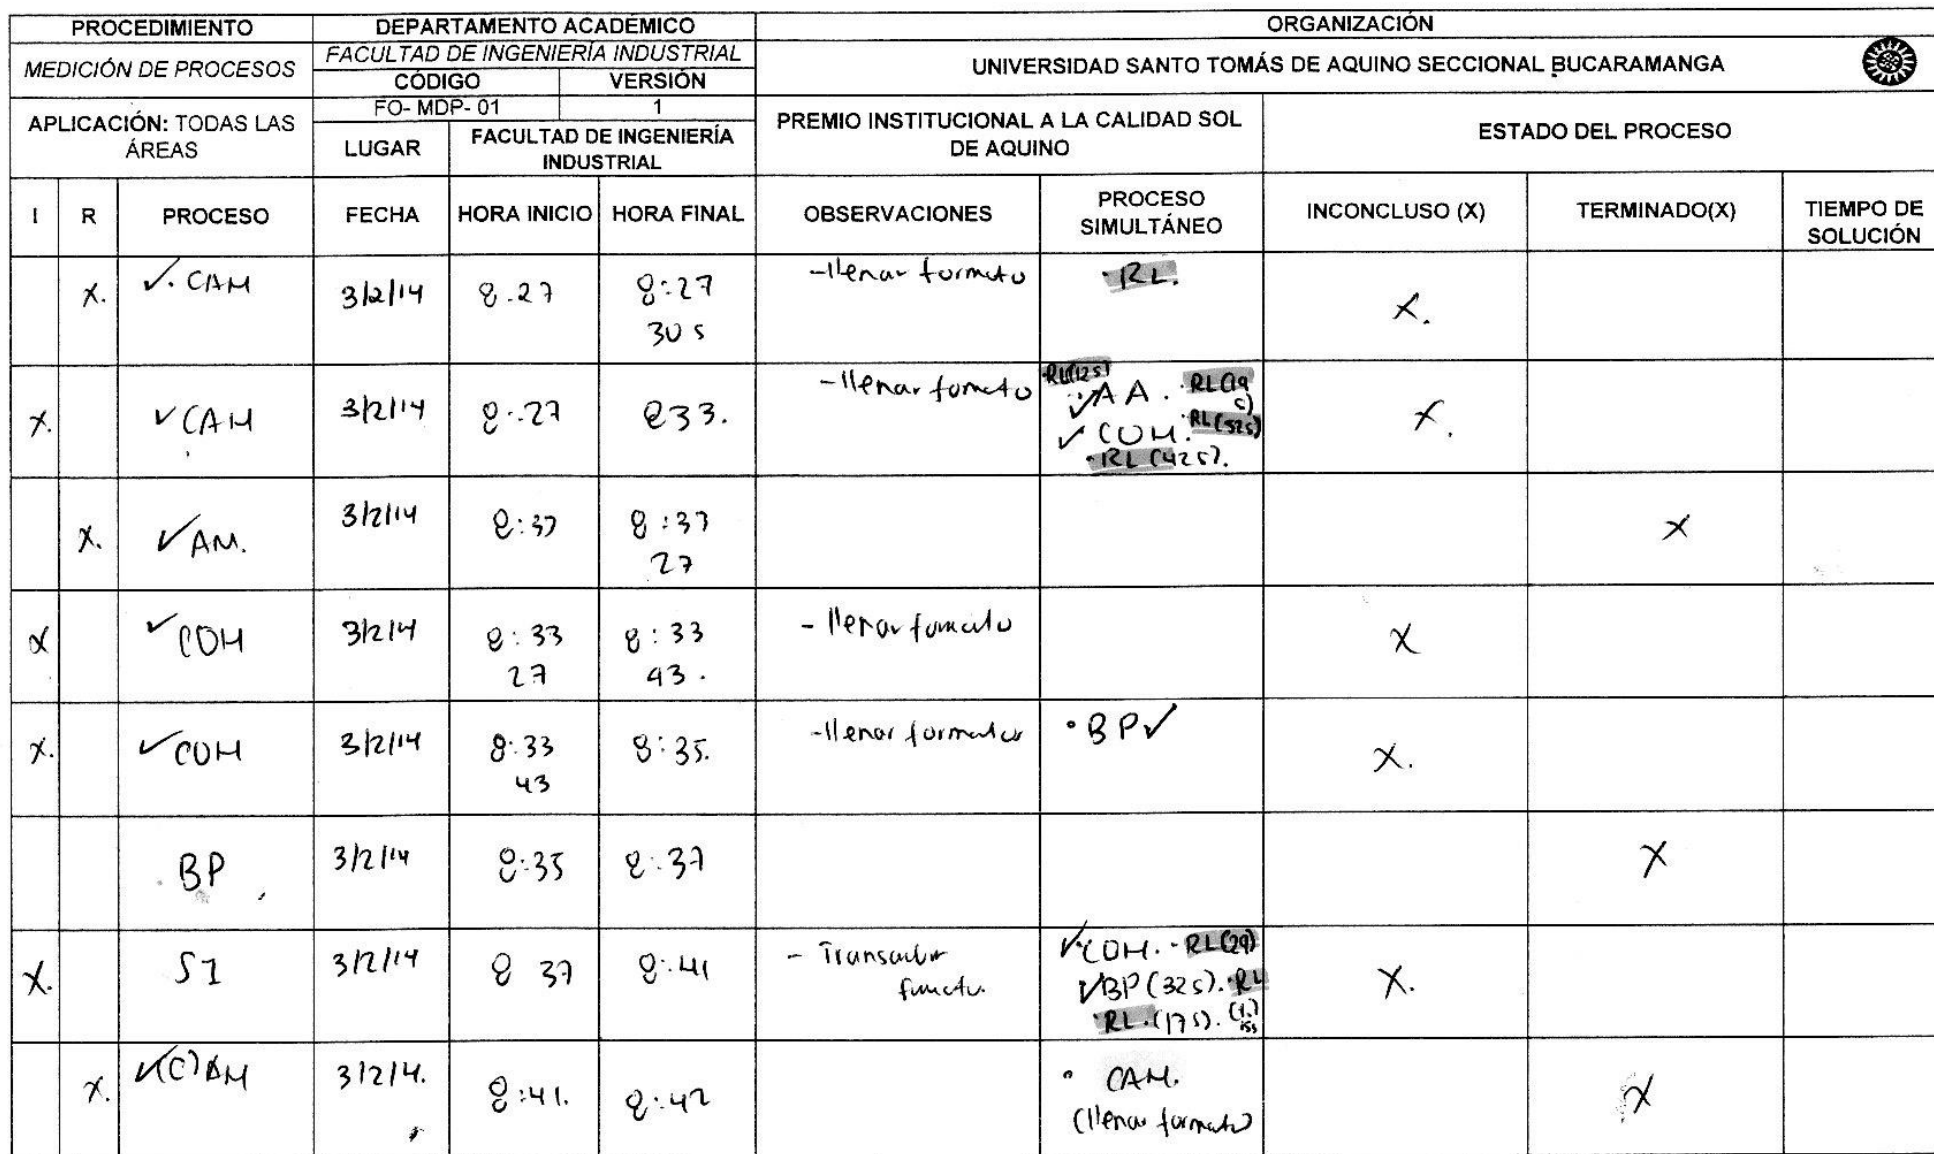 PROCEDIMIENTO DEPARTAMENTO ACADÉMICO ORGANIZACIÓN
MEDICIÓN DE PROCESOS FACULTAD DE INGENIERÍA INDUSTRIAL UNIVERSIDAD SANTO TOMÁS DE AQUINO SECCIONAL BUCARAMANGA
CÓDIGO VERSIÓN
FO- MDP- 01 1
APLICACIÓN: TODAS LAS ÁREAS LUGAR FACULTAD DE INGENIERÍA INDUSTRIAL PREMIO INSTITUCIONAL A LA CALIDAD SOL DE AQUINO ESTADO DEL PROCESO
I R PROCESO FECHA HORA INICIO HORA FINAL OBSERVACIONES PROCESO SIMULTÁNEO INCONCLUSO (X) TERMINADO(X) TIEMPO DE SOLUCIÓN
X. ✓. CAM 3/2/14 8.27 8:27 -llenar formato ·RL. X.
30 s
X. ✓CAM 3/2/14 8:27 833. -llenar formato ·RL(12s) X.
✓AA. ·RL(19 s)
✓COM. ·RL(52s)
·RL (42s).
X. ✓AM. 3/2/14 8:37 8:37 X
27
X ✓COM 3/2/14 8:33 8:33 - llenar formato X
27 43.
X. ✓COM 3/2/14 8:33 8:35. -llenar formatos •BP✓ X.
43
BP 3/2/14 8:35 8:37 X
X. SI 3/2/14 8 37 8:41 - ✓COM. ·RL(29) X.
✓BP (32s). ·RL
·RL.(17s).
X. ✓(C)AM 3/2/14. 8:41. 8:42 • CAM. X
(llenar formato)